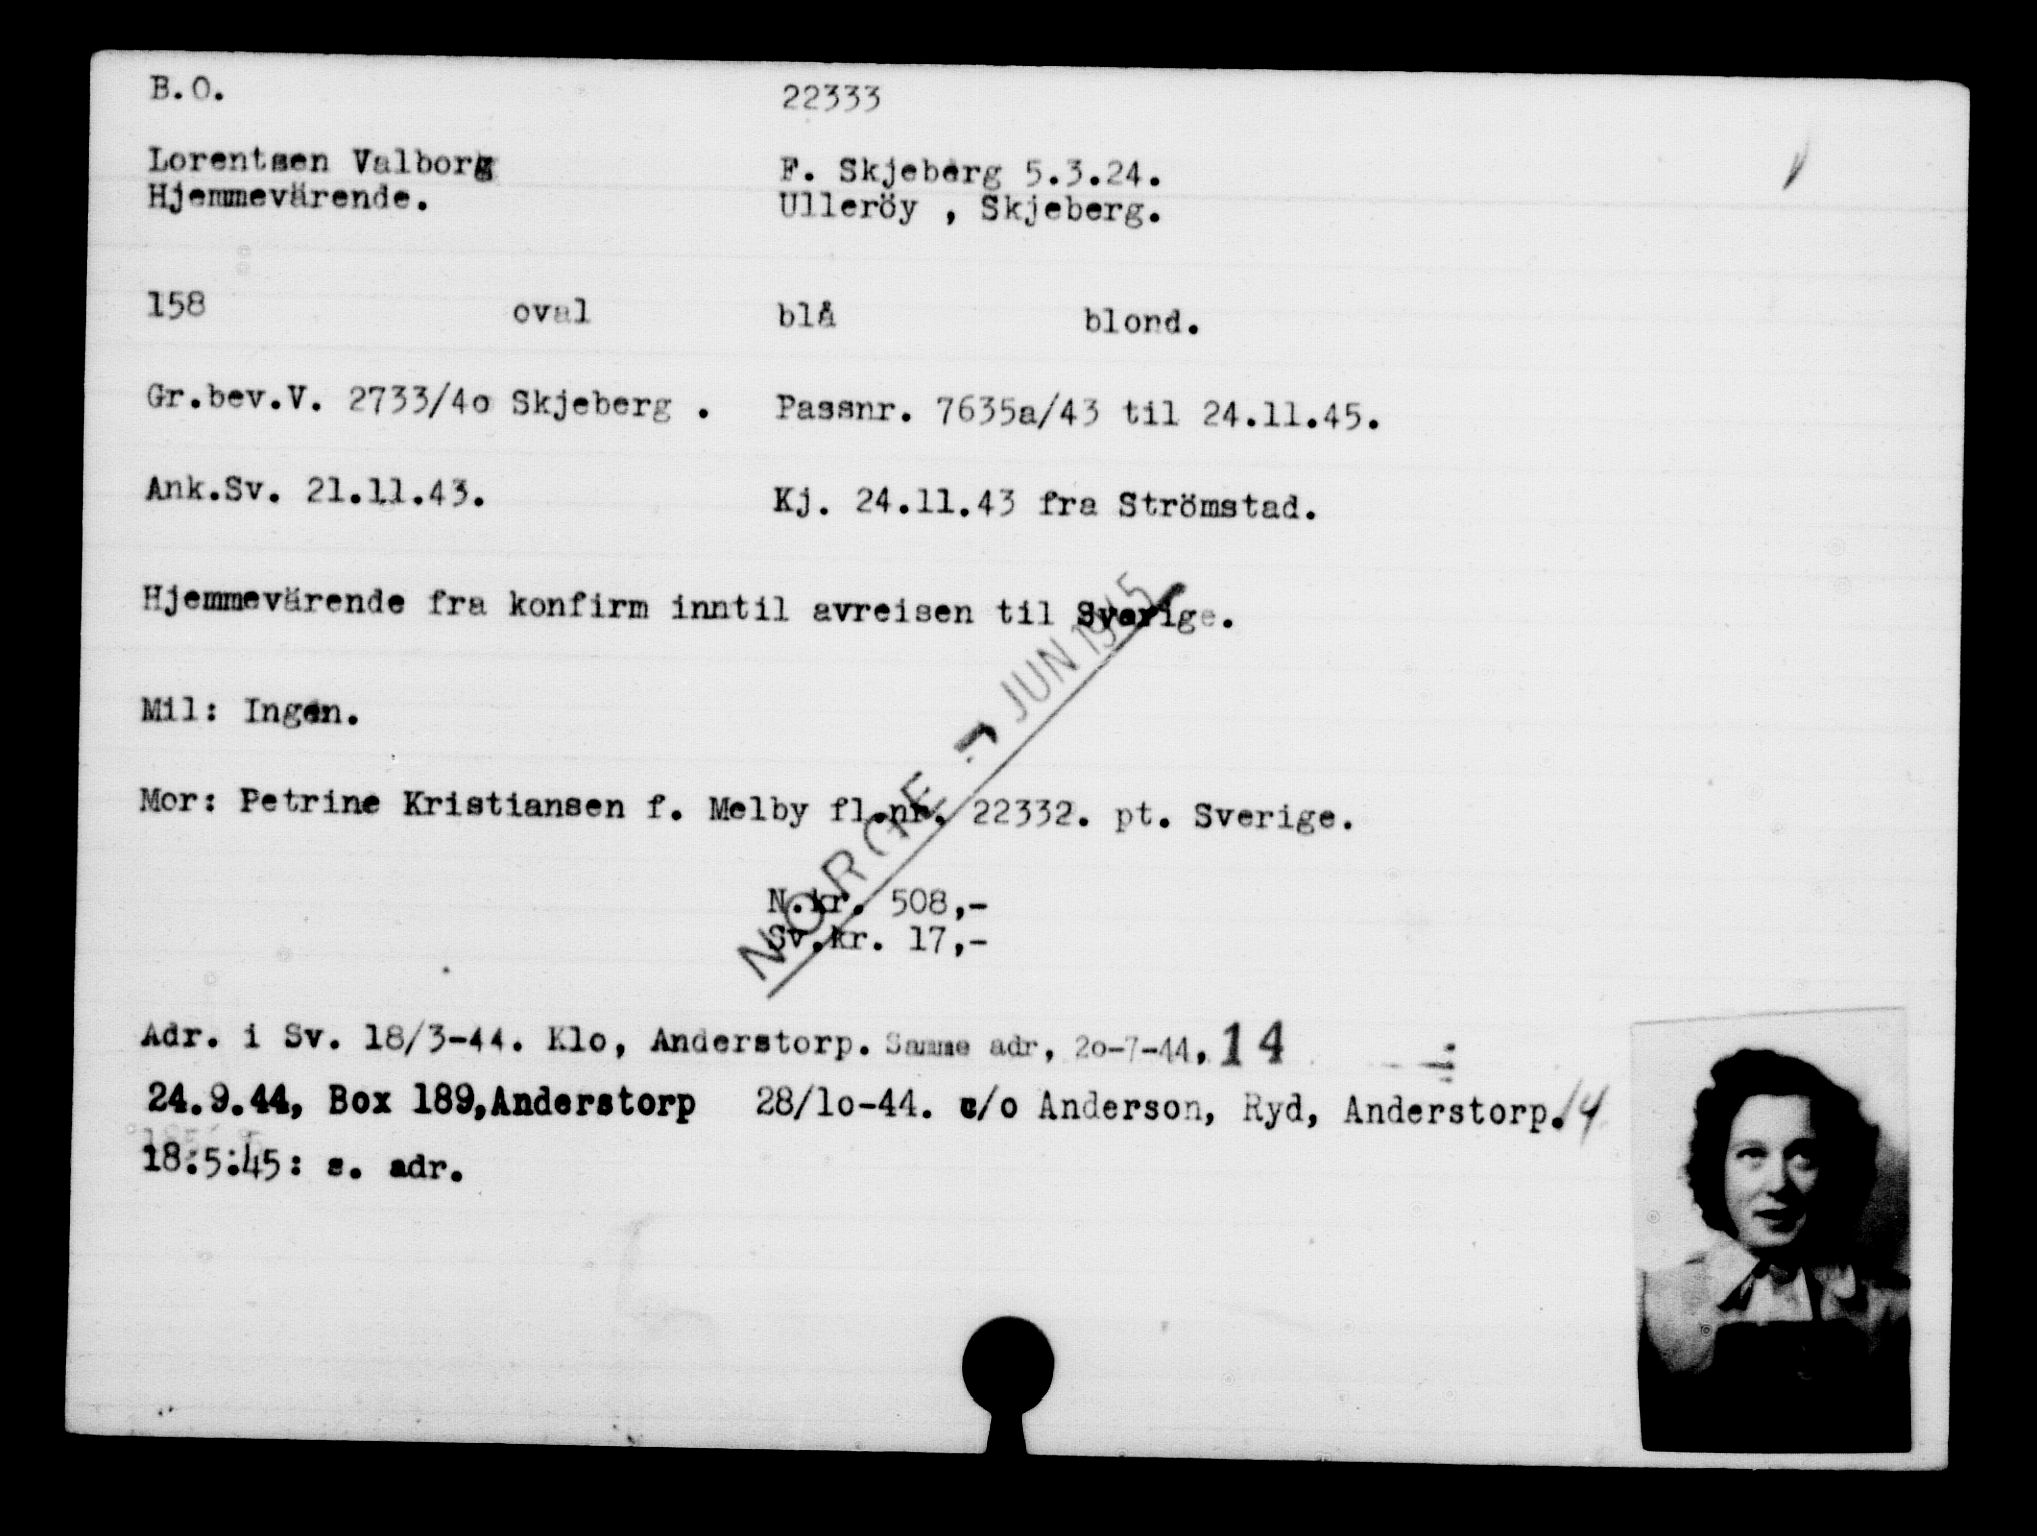 B.O. 22333
Lorentsen Valborg F. Skjeberg 5.3.24.
Hjemmevärende. Ulleröy , Skjeberg.
158 oval blå blond.
Gr.bev.V. 2733/4o Skjeberg . Passnr. 7635a/43 til 24.11.45.
Ank.Sv. 21.11.43. Kj. 24.11.43 fra Strömstad.
Hjemmevärende fra konfirm inntil avreisen til Sverige.
NORGE - 7 JUN 1945
Mil: Ingen.
Mor: Petrine Kristiansen f. Melby fl.nr. 22332. pt. Sverige.
N.kr. 508,-
Sv.kr. 17,-
Adr. i Sv. 18/3-44. Klo, Anderstorp. Samme adr, 2o-7-44, 14
24.9.44, Box 189,Anderstorp 28/1o-44. c/o Anderson, Ryd, Anderstorp. 14
18:5:45: s. adr.